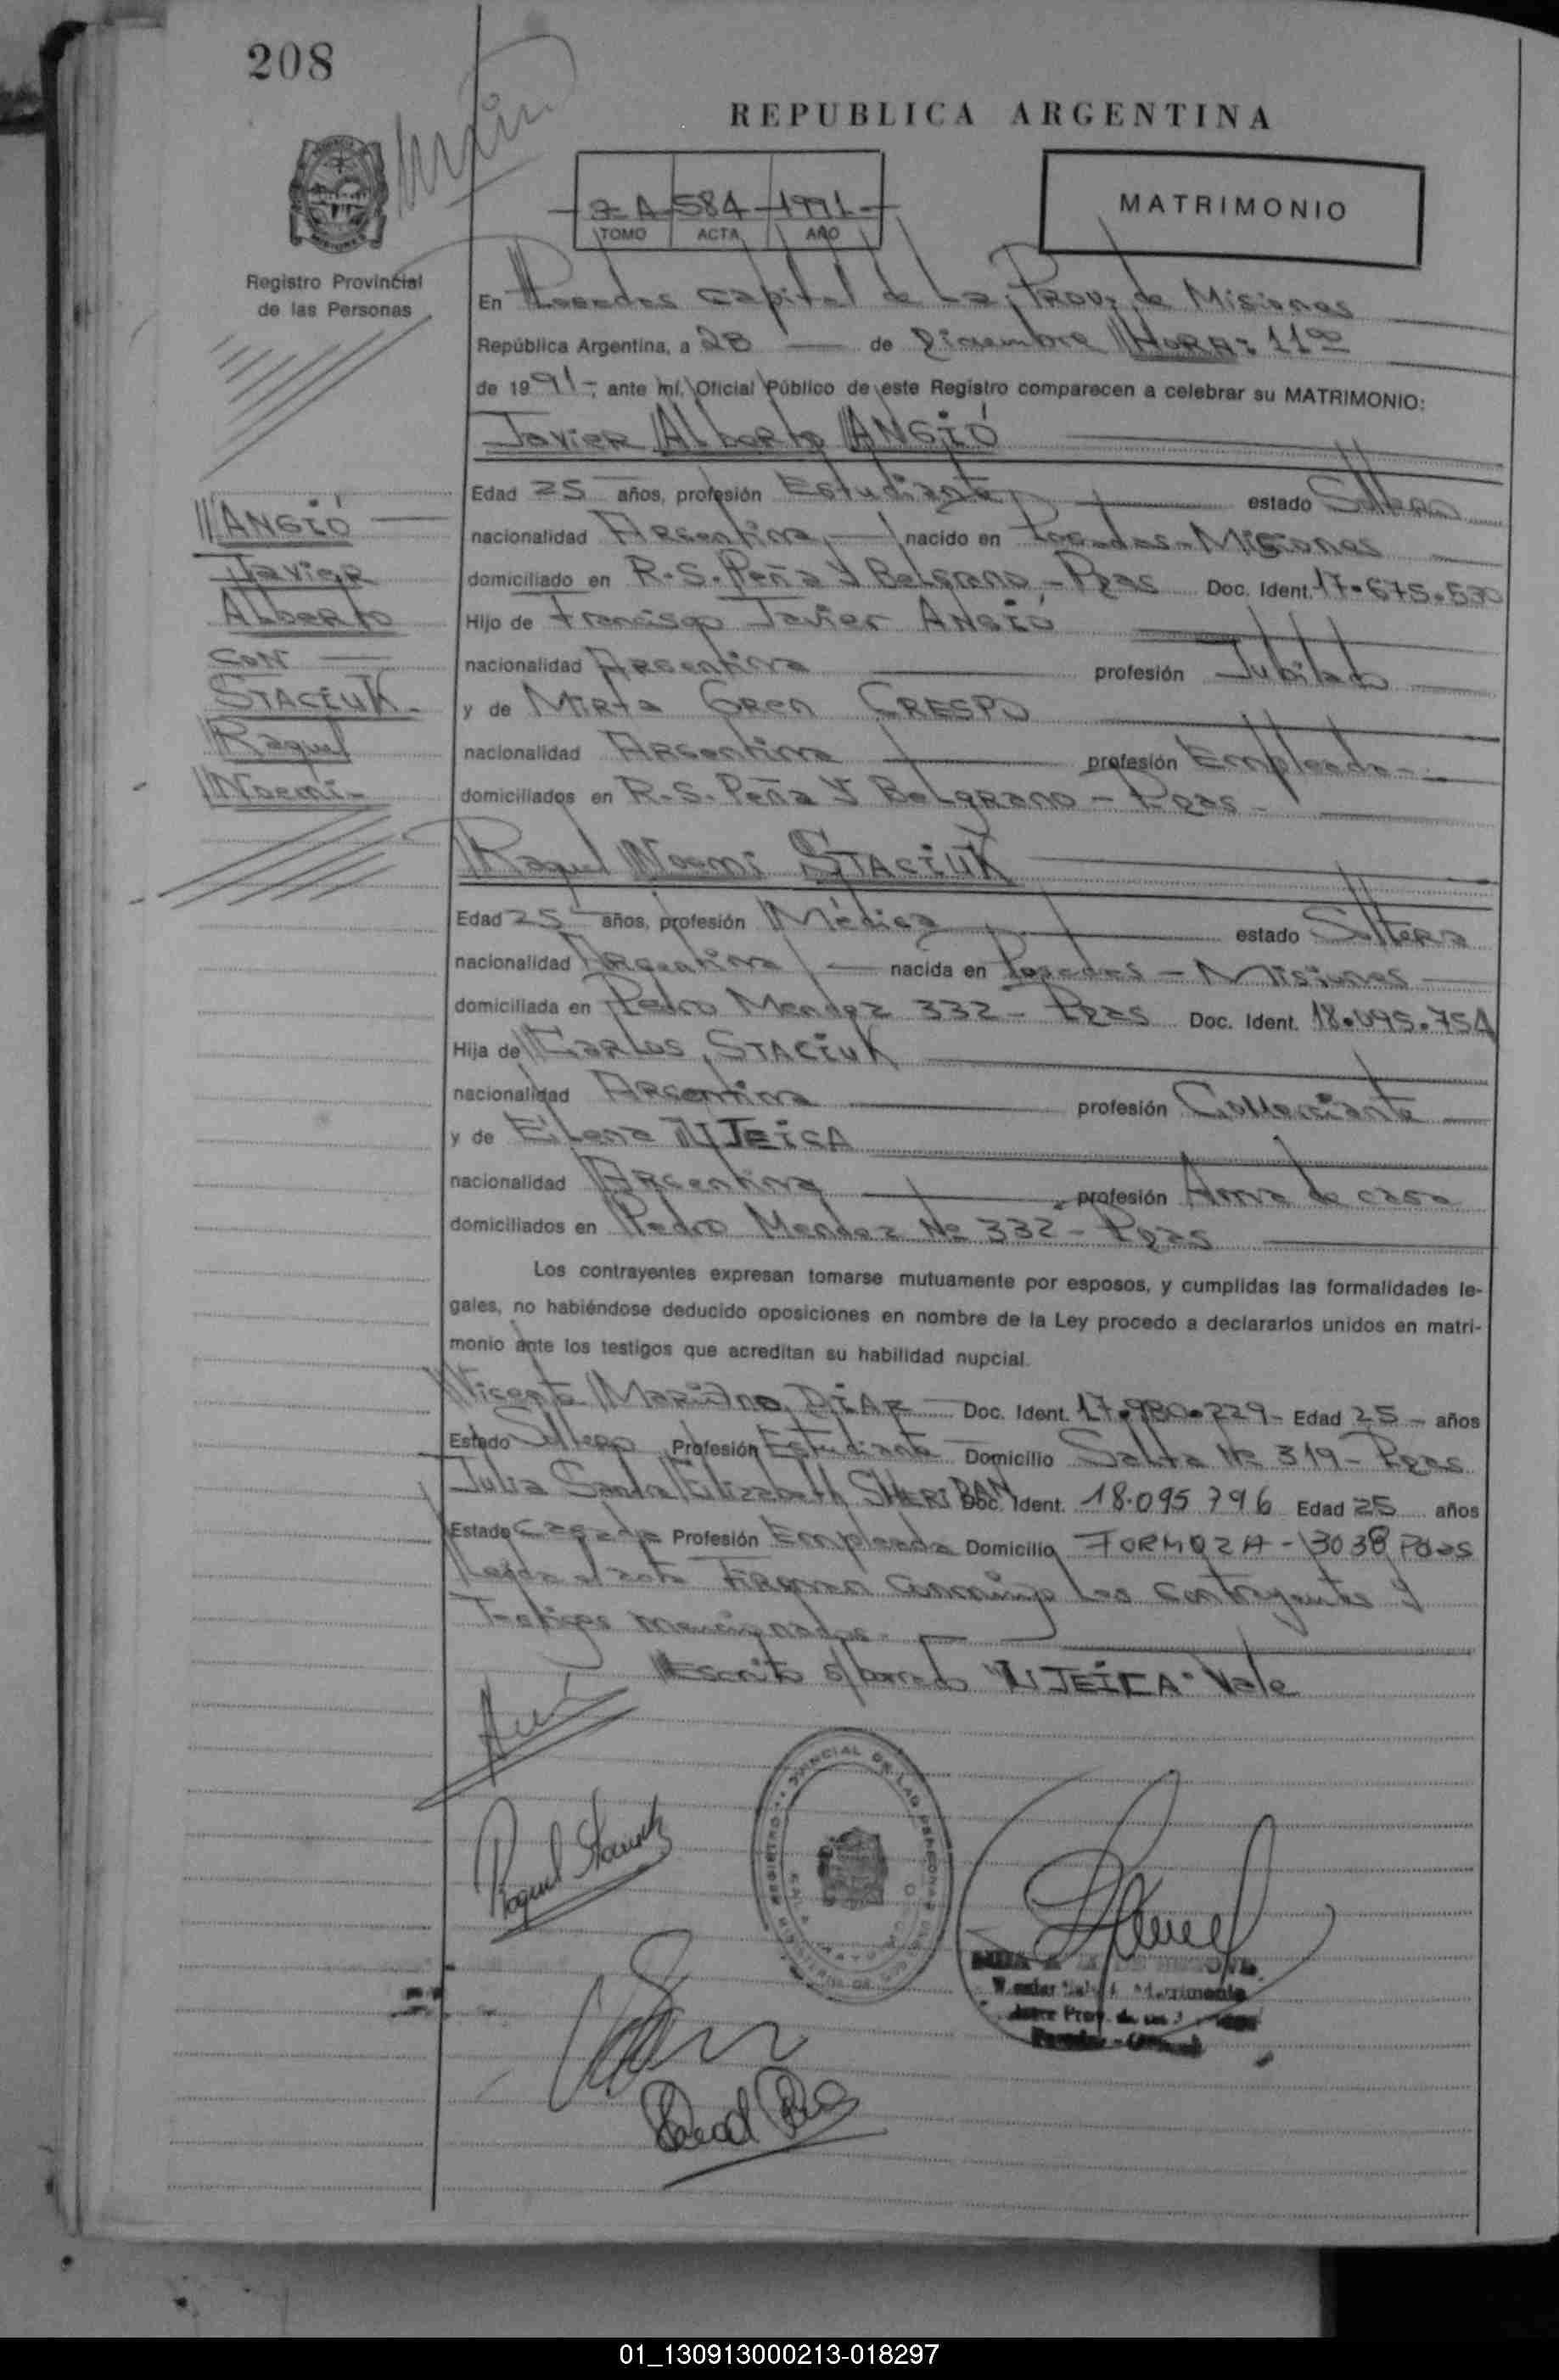 208
REPUBLICA ARGENTINA
MATRIMONIO
A 584 1991
TOMO ACTA AÑO
Registro Provincial
de las Personas
En Posadas Capital de La Prov. de Misiones
República Argentina, a 28 de Diciembre HORA: 11
de 1991 - ante mí, Oficial Público de este Registro comparecen a celebrar su MATRIMONIO:
Javier Alberto ANGIÓ
Edad 25 años, profesión Estudiante estado Soltero
nacionalidad Argentina nacido en Posadas - Misiones
domiciliado en R.S. Peña Y Belgrano - Pdas Doc. Ident. 17.675.530
Hijo de Francisco Javier ANGIÓ
nacionalidad Argentina profesión Jubilado
y de Mirta CRESPO
nacionalidad Argentina profesión Empleada
domiciliados en R.S. Peña Y Belgrano - Pdas -
ANGIÓ
Javier
Alberto
CON
STACIUK
Raquel
Noemi
Raquel Noemi STACIUK
Edad 25 años, profesión Médica estado Soltera
nacionalidad Argentina nacida en Posadas - Misiones
domiciliada en Pedro Mendez 332 - Pdas Doc. Ident. 18.095.754
Hija de Carlos STACIUK
nacionalidad Argentina profesión Comerciante
y de Elena
nacionalidad Argentina profesión Ama de casa
domiciliados en Pedro Mendez Nº 332 - Pdas
Los contrayentes expresan tomarse mutuamente por esposos, y cumplidas las formalidades le-
gales, no habiéndose deducido oposiciones en nombre de la Ley procedo a declararlos unidos en matri-
monio ante los testigos que acreditan su habilidad nupcial.
Vicente Mariano DIAZ Doc. Ident. 17.980.229 - Edad 25 - años
Estado Soltero Profesión Estudiante Domicilio Salta Nº 319 - Pdas
Julia Sandra Elizabeth SHERIDAN Doc. Ident. 18.095 796 Edad 25 años
Estado Casada Profesión Empleada Domicilio FORMOZA - 3038 Pdas
Leída el acta Firman conmigo los contrayentes y
Testigos mencionados.
Escrito s/borrado Vale
Raquel Staciuk
01_130913000213-018297